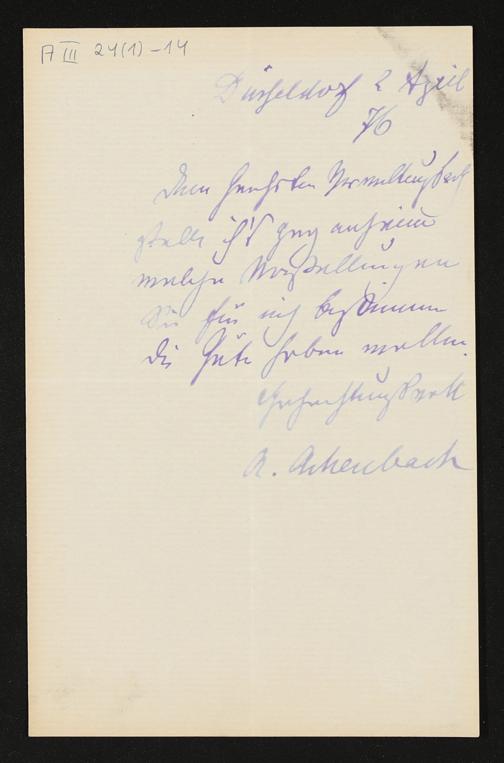 A III 24(1)-14
Düsseldorf 2 April
76
Dem geehrten Verwaltungsrath
stelle ich's ganz anheim
welche Vorstellungen
Sie für mich bestimmen
die Güte haben wollen.
Hochachtungsvoll
A. Achenbach